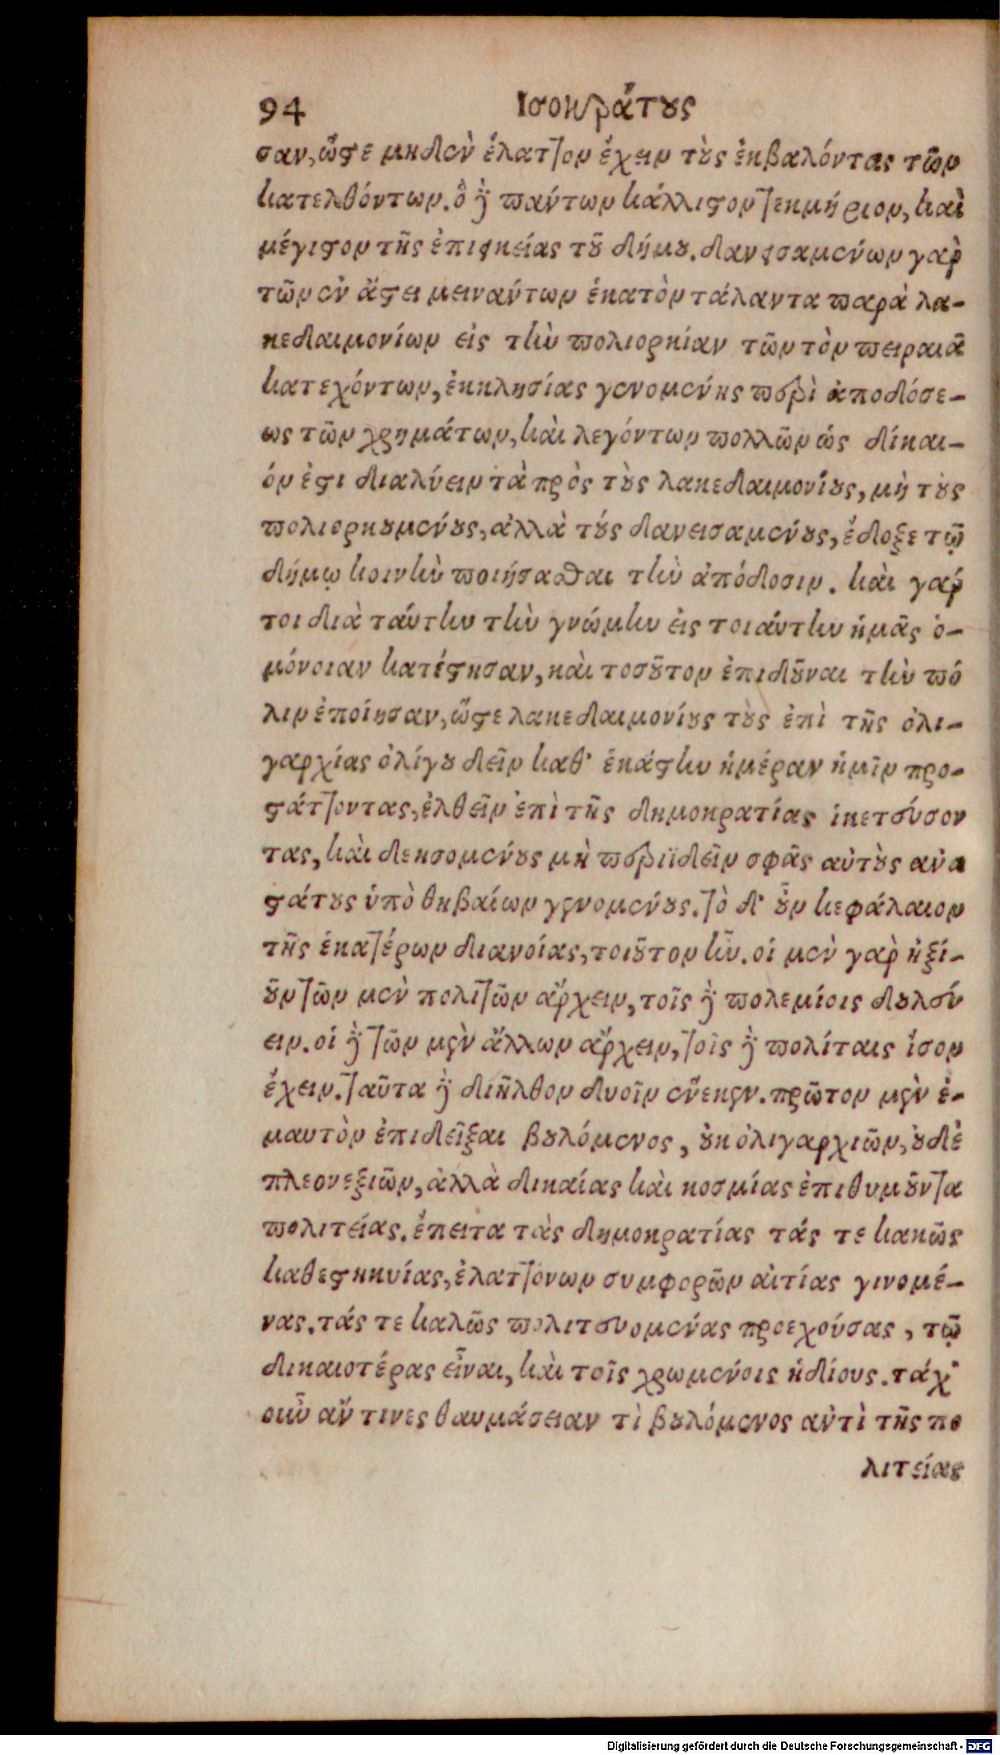 94 Ισοκράτους
σαν, ὥστε μηδὲν ἔλαττον ἔχειν τοὺς ἐκβαλόντας τῶν
κατελθόντων. ὃ δὲ πάντων κάλλιστον τεκμήριον, καὶ
μέγιστον τῆς ἐπιεικείας τοῦ δήμου. δανεισαμένων γὰρ
τῶν ἐν ἄστει μεινάντων ἑκατὸν τάλαντα παρὰ λα-
κεδαιμονίων εἰς τὴν πολιορκίαν τῶν τὸν πειραιᾶ
κατεχόντων, ἐκκλησίας γενομένης περὶ ἀποδόσε-
ως τῶν χρημάτων, καὶ λεγόντων πολλῶν ὡς δίκαι-
όν ἐστι διαλύειν τὰ πρὸς τοὺς λακεδαιμονίους, μὴ τοὺς
πολιορκουμένους, ἀλλὰ τούς δανεισαμένους, ἔδοξε τῷ
δήμῳ κοινὴν ποιήσασθαι τὴν ἀπόδοσιν. καὶ γάρ
τοι διὰ ταύτην τὴν γνώμην εἰς τοιαύτην ἡμᾶς ὁ-
μόνοιαν κατέστησαν, καὶ τοσοῦτον ἐπιδοῦναι τὴν πό
λιν ἐποίησαν, ὥστε λακεδαιμονίους τοὺς ἐπὶ τῆς ὀλι-
γαρχίας ὀλίγου δεῖν καθ' ἑκάστην ἡμέραν ἡμῖν προ-
στάττοντας, ἐλθεῖν ἐπὶ τῆς δημοκρατίας ἱκετεύσον
τας, καὶ δεησομένους μὴ περιϊδεῖν σφᾶς αὐτοὺς ἀνα
στάτους ὑπὸ θηβαίων γενομένους. τὸ δ' οὖν κεφάλαιον
τῆς ἑκατέρων διανοίας, τοιοῦτον ἦν. οἱ μὲν γὰρ ἠξί-
ουν τῶν μὲν πολιτῶν ἄρχειν, τοῖς δὲ πολεμίοις δουλεύ
ειν. οἱ δὲ τῶν μὲν ἄλλων ἄρχειν, τοῖς δὲ πολίταις ἴσον
ἔχειν. ταῦτα δὲ διῆλθον δυοῖν ἕνεκεν. πρῶτον μὲν ἐ-
μαυτὸν ἐπιδεῖξαι βουλόμενος, οὐκ ὀλιγαρχιῶν, οὐδὲ
πλεονεξιῶν, ἀλλὰ δικαίας καὶ κοσμίας ἐπιθυμοῦντα
πολιτείας. ἔπειτα τὰς δημοκρατίας τάς τε κακῶς
καθεστηκυίας, ἐλαττόνων συμφορῶν αἰτίας γινομέ-
νας. τάς τε καλῶς πολιτευομένας προεχούσας, τῷ
δικαιοτέρας εἶναι, καὶ τοῖς χρωμένοις ἡδίους. τάχ'
οὖν ἄν τινες θαυμάσειαν τὶ βουλόμενος ἀντὶ τῆς πο
λιτείας
Digitalisierung gefördert durch die Deutsche Forschungsgemeinschaft - DFG